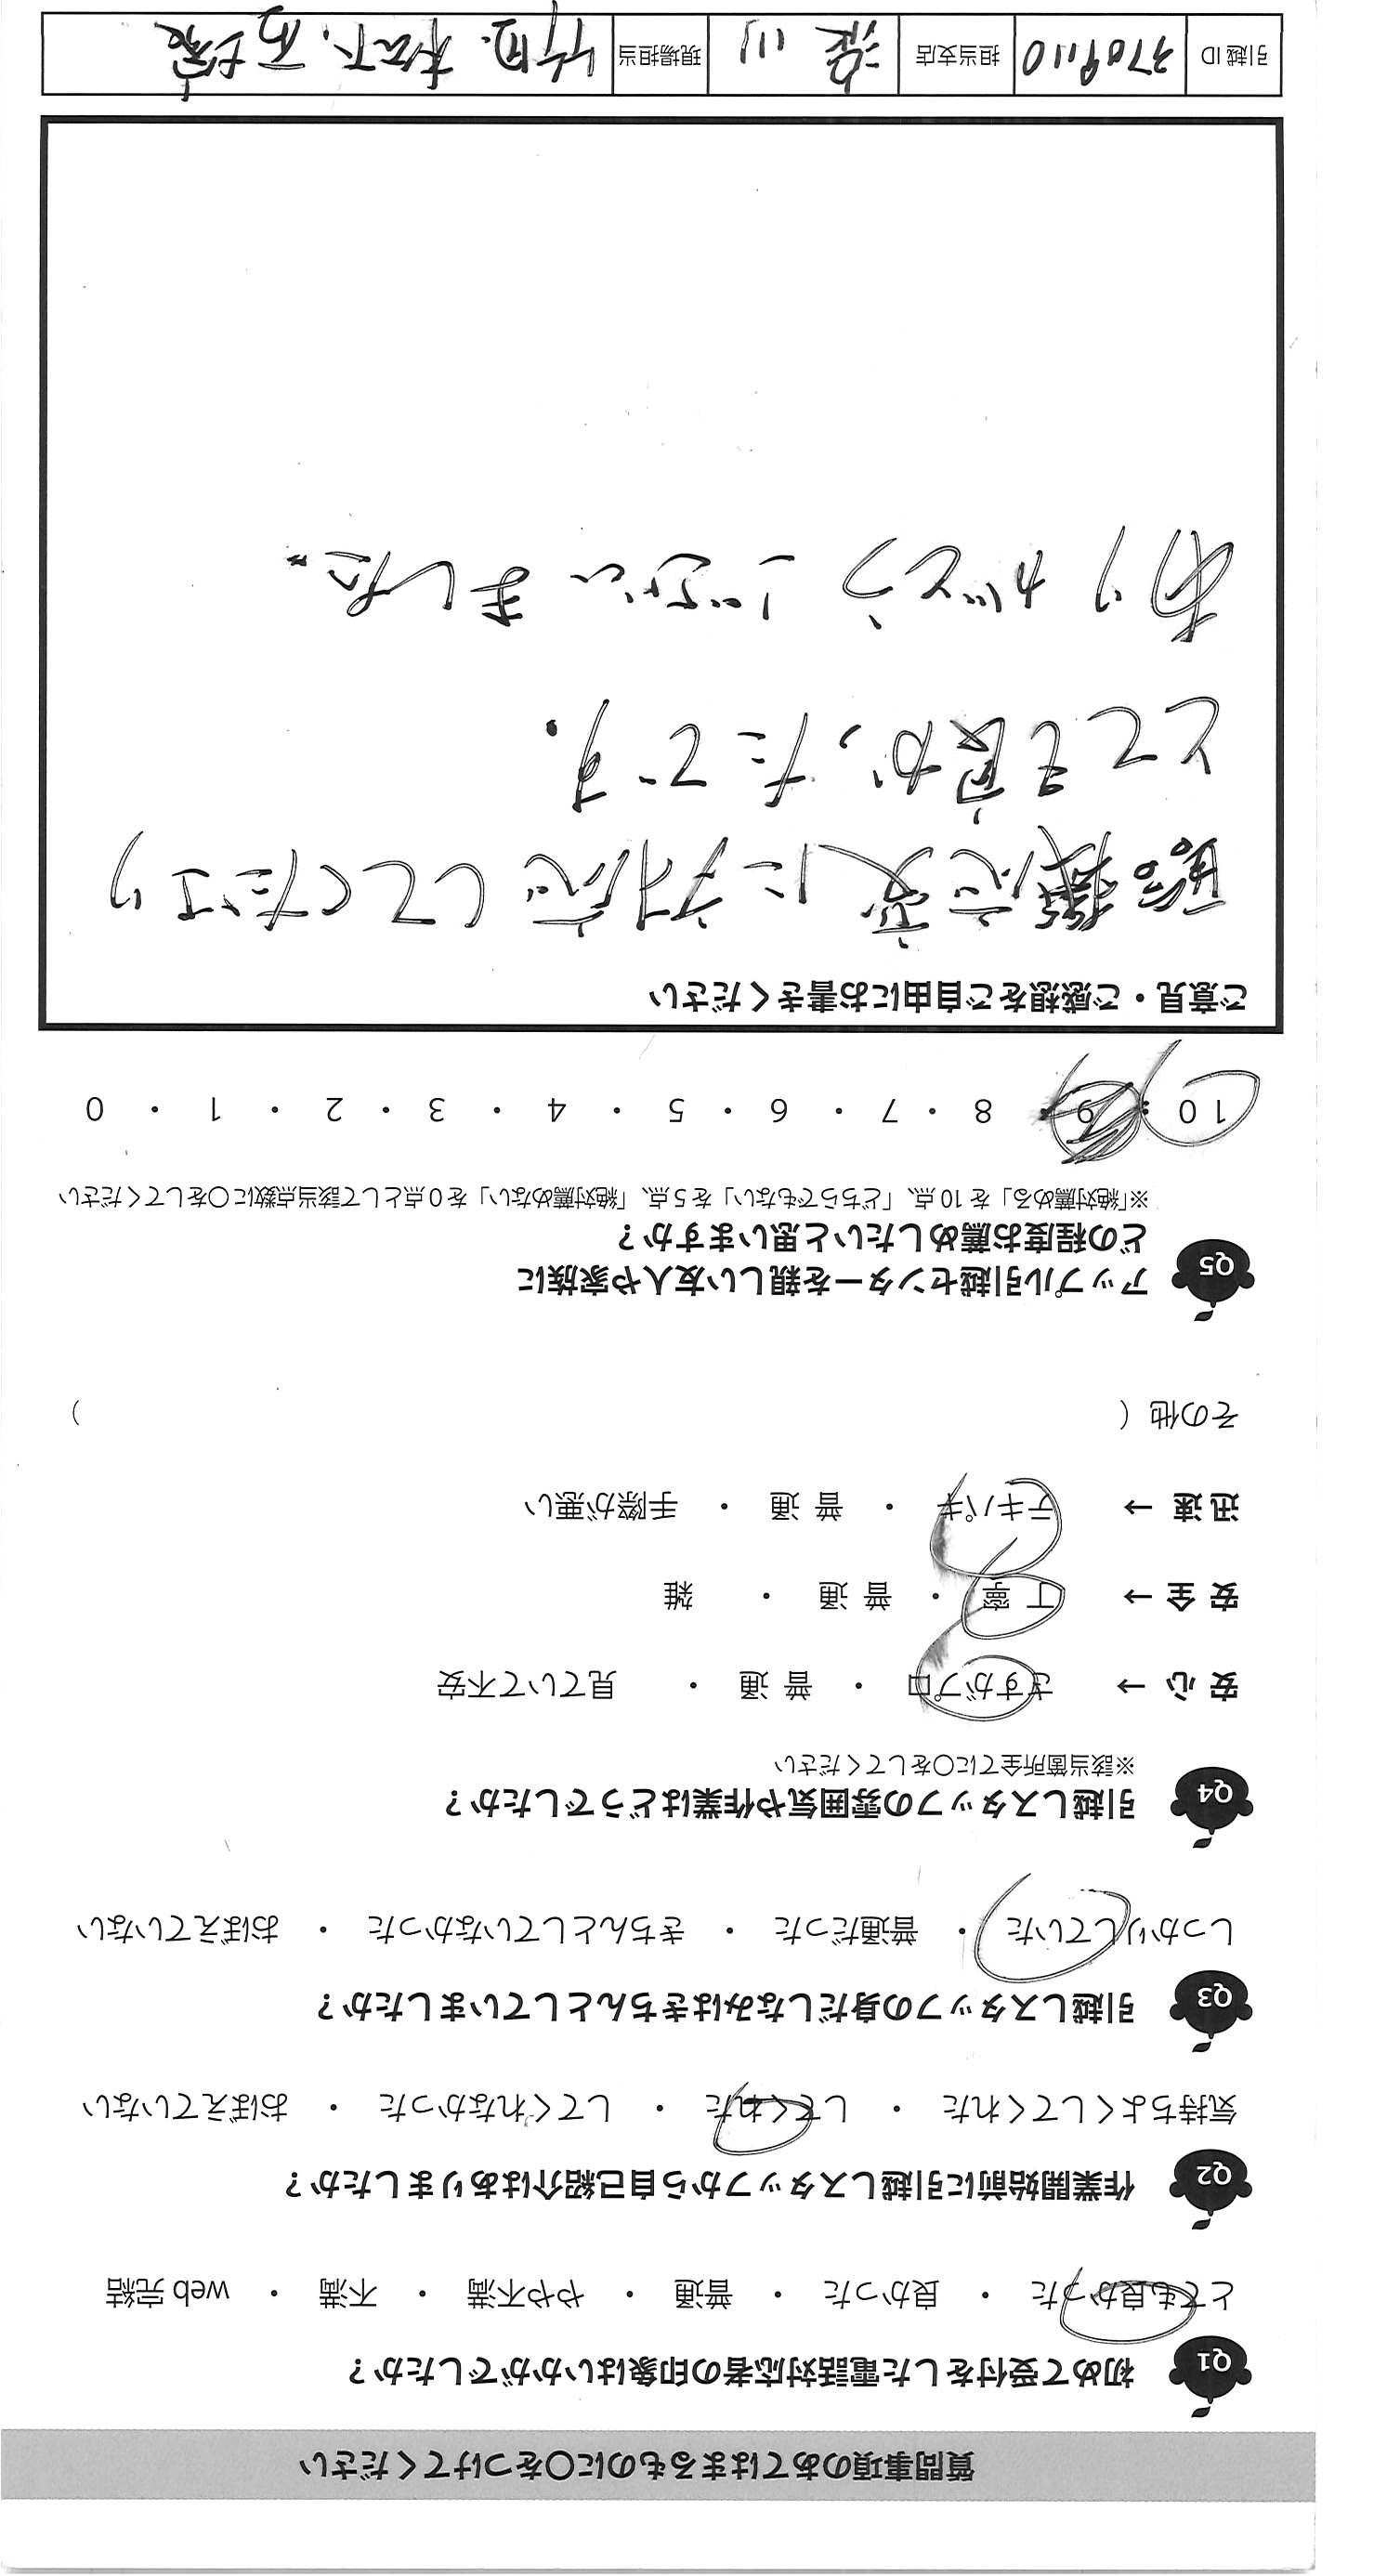 質問事項のあてはまるものに○をつけてください
Q1 初めて受付をした電話対応者の印象はいかがでしたか？
とても良かった ・ 良かった ・ 普通 ・ やや不満 ・ 不満 ・ web 完結
Q2 作業開始前に引越しスタッフから自己紹介はありましたか？
気持ちよくしてくれた ・ してくれた ・ してくれなかった ・ おぼえていない
Q3 引越しスタッフの身だしなみはきちんとしていましたか？
しっかりしていた ・ 普通だった ・ きちんとしていなかった ・ おぼえていない
Q4 引越しスタッフの雰囲気や作業はどうでしたか？
※該当箇所全てに○をしてください
安 心 → さすがプロ ・ 普 通 ・ 見ていて不安
安 全 → 丁 寧 ・ 普 通 ・ 雑
迅 速 → テキパキ ・ 普 通 ・ 手際が悪い
その他（ ）
Q5 アップル引越センターを親しい友人や家族に
どの程度お薦めしたいと思いますか？
※「絶対薦める」を 10 点、「どちらでもない」を 5 点、「絶対薦めない」を 0 点として該当点数に○をしてください
10 ・ 9 ・ 8 ・ 7 ・ 6 ・ 5 ・ 4 ・ 3 ・ 2 ・ 1 ・ 0
ご意見・ご感想をご自由にお書きください
臨機応変に対応してくださり
とても良かったです.
ありがとうございました。
引越 ID 3709110 担当支店 淀川 現場担当 竹田. 松下.